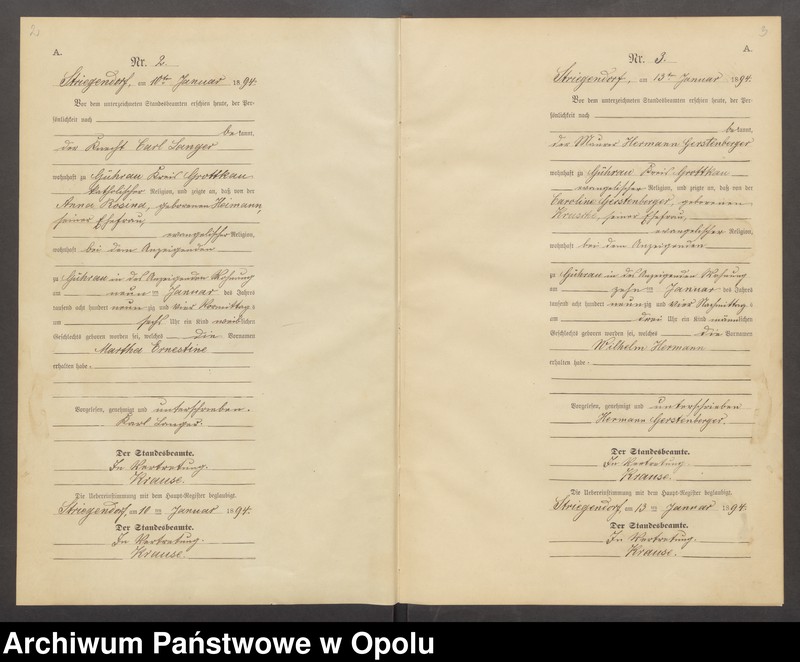 2.
A.
Nr. 2.
Striegendorf, am 10ten Januar 1894.
Vor dem unterzeichneten Standesbeamten erschien heute, der Per-
sönlichkeit nach
be kannt,
der Knecht Carl Langer
wohnhaft zu Gührau Kreis Grottkau
katholischer Religion, und zeigte an, daß von der
Anna Rosina, geborenen Heimann,
seiner Ehefrau,
evangelischer Religion,
wohnhaft bei dem Anzeigenden
zu Gührau in des Anzeigenden Wohnung
am neun ten Januar des Jahres
tausend acht hundert neunzig und vier Vormittag s
um sechs Uhr ein Kind weiblichen
Geschlechts geboren worden sei, welches die Vornamen
Martha Ernestine
erhalten habe.
Vorgelesen, genehmigt und unterschrieben.
Karl Langer.
Der Standesbeamte.
In Vertretung.
Krause.
Die Uebereinstimmung mit dem Haupt-Register beglaubigt.
Striegendorf, am 10 ten Januar 1894.
Der Standesbeamte.
In Vertretung.
Krause.
3
A.
Nr. 3.
Striegendorf, am 13ten Januar 1894.
Vor dem unterzeichneten Standesbeamten erschien heute, der Per-
sönlichkeit nach
be kannt,
der Maurer Hermann Gerstenberger
wohnhaft zu Gührau Kreis Grottkau
evangelischer Religion, und zeigte an, daß von der
Caroline Gerstenberger, geborenen
Kruschke, seiner Ehefrau,
evangelischer Religion,
wohnhaft bei dem Anzeigenden
zu Gührau in des Anzeigenden Wohnung
am zehn ten Januar des Jahres
tausend acht hundert neunzig und vier Nachmittag s
um drei Uhr ein Kind männlichen
Geschlechts geboren worden sei, welches die Vornamen
Wilhelm Hermann
erhalten habe.
Vorgelesen, genehmigt und unterschrieben
Hermann Gerstenberger.
Der Standesbeamte.
In Vertretung.
Krause.
Die Uebereinstimmung mit dem Haupt-Register beglaubigt.
Striegendorf, am 13 ten Januar 1894.
Der Standesbeamte.
In Vertretung.
Krause.
Archiwum Państwowe w Opolu